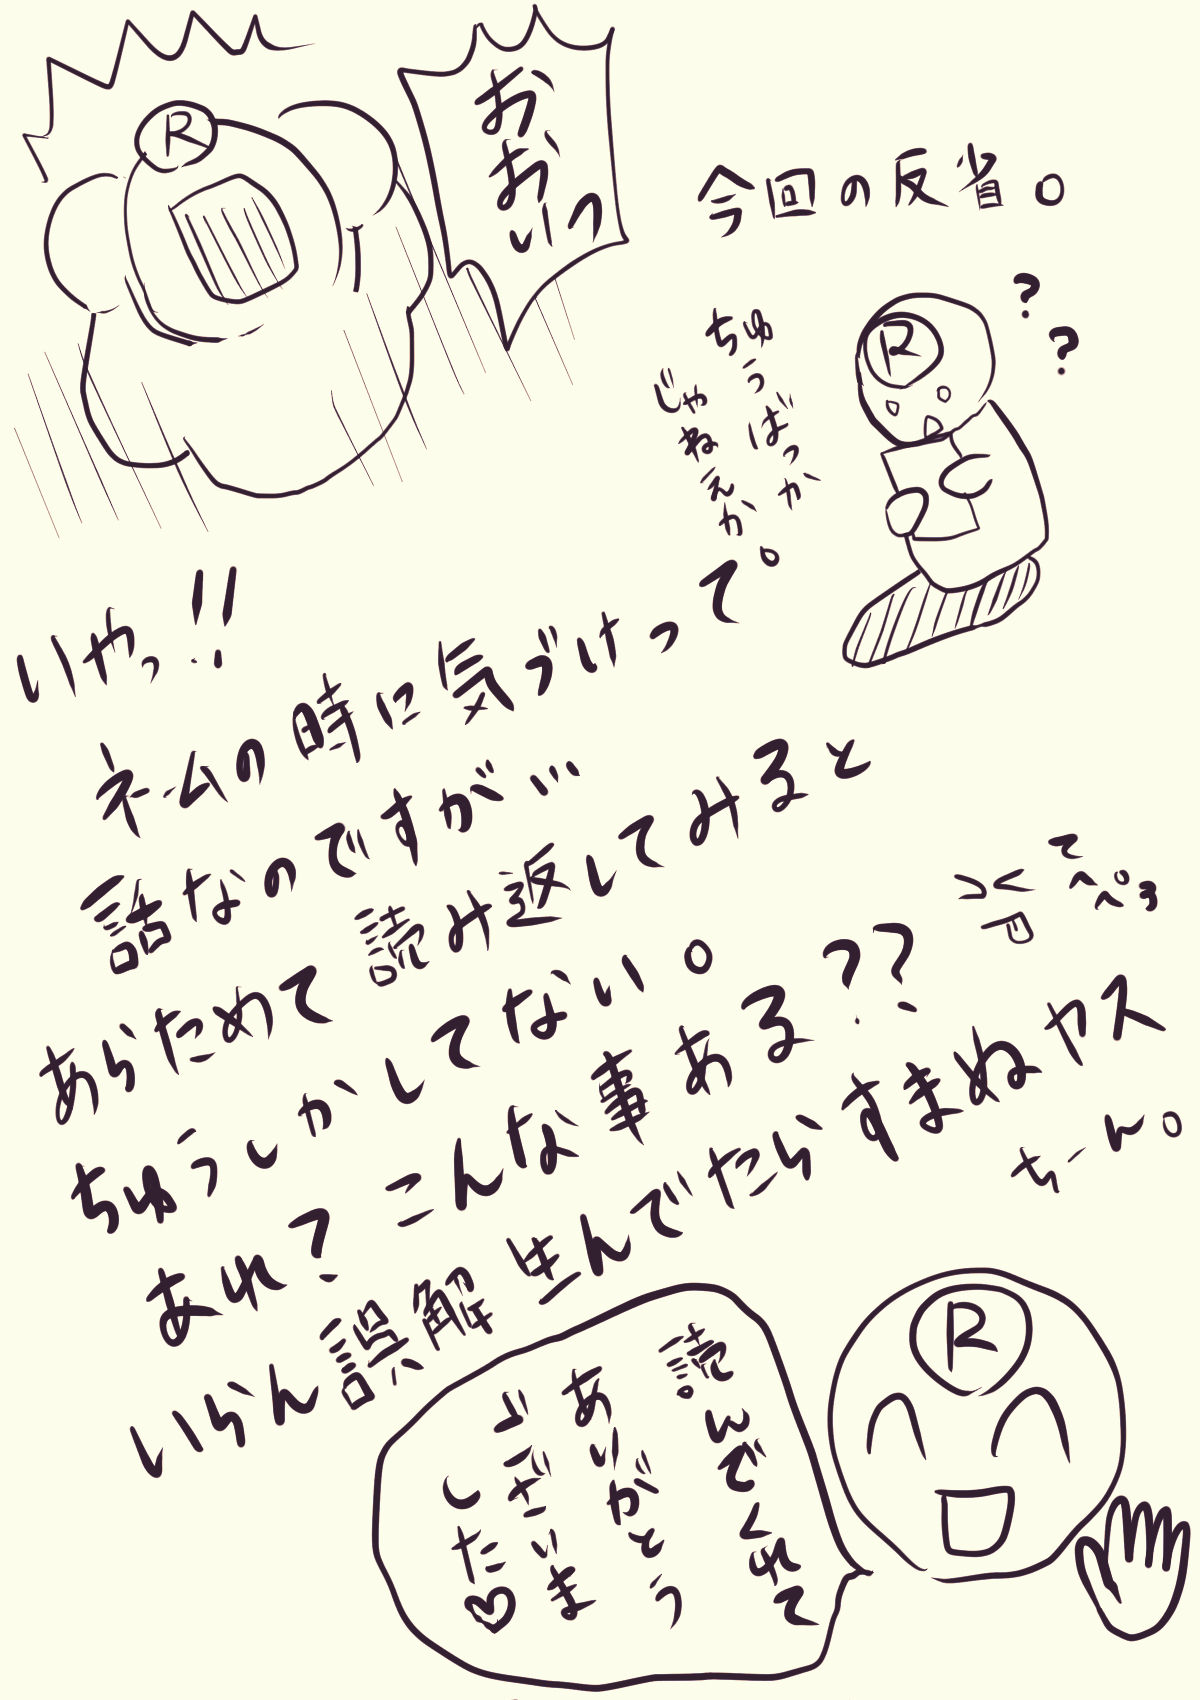 今回の反省。
R
おおいっ
R
??
ちゅうばっか
じゃねえか。
いやっ!!
ネームの時に気づけって
話なのですが…
あらためて読み返してみると
ちゅうしかしてない。
てへぺろ
あれ?こんな事ある??
いらん誤解生んでたらすまぬヤス
ちーん。
R
読んでくれて
ありがとう
ございま
した♡